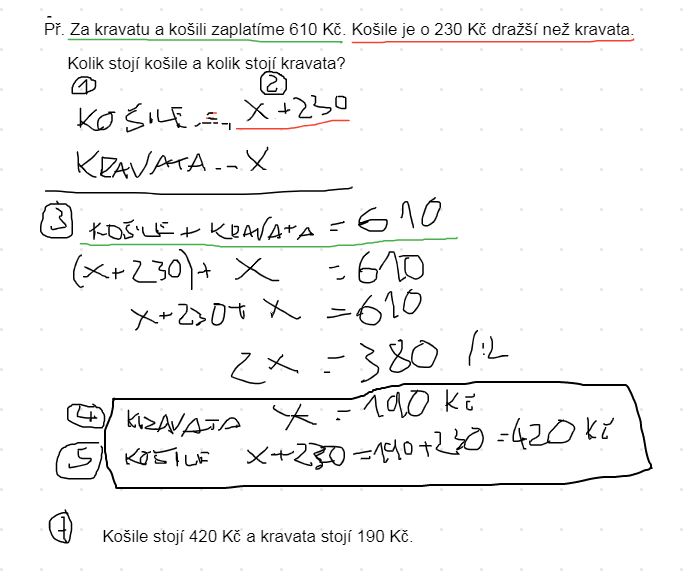 Př. Za kravatu a košili zaplatíme 610 Kč. Košile je o 230 Kč dražší než kravata.
Kolik stojí košile a kolik stojí kravata?
① ②
KOŠILE ... x+230
KRAVATA .. x
③ KOŠILE + KRAVATA = 610
(x+230)+ x = 610
x+230+ x = 610
2x = 380 /:2
④ KRAVATA x = 190 Kč
⑤ KOŠILE x+230 =190+230 =420 Kč
⑦ Košile stojí 420 Kč a kravata stojí 190 Kč.